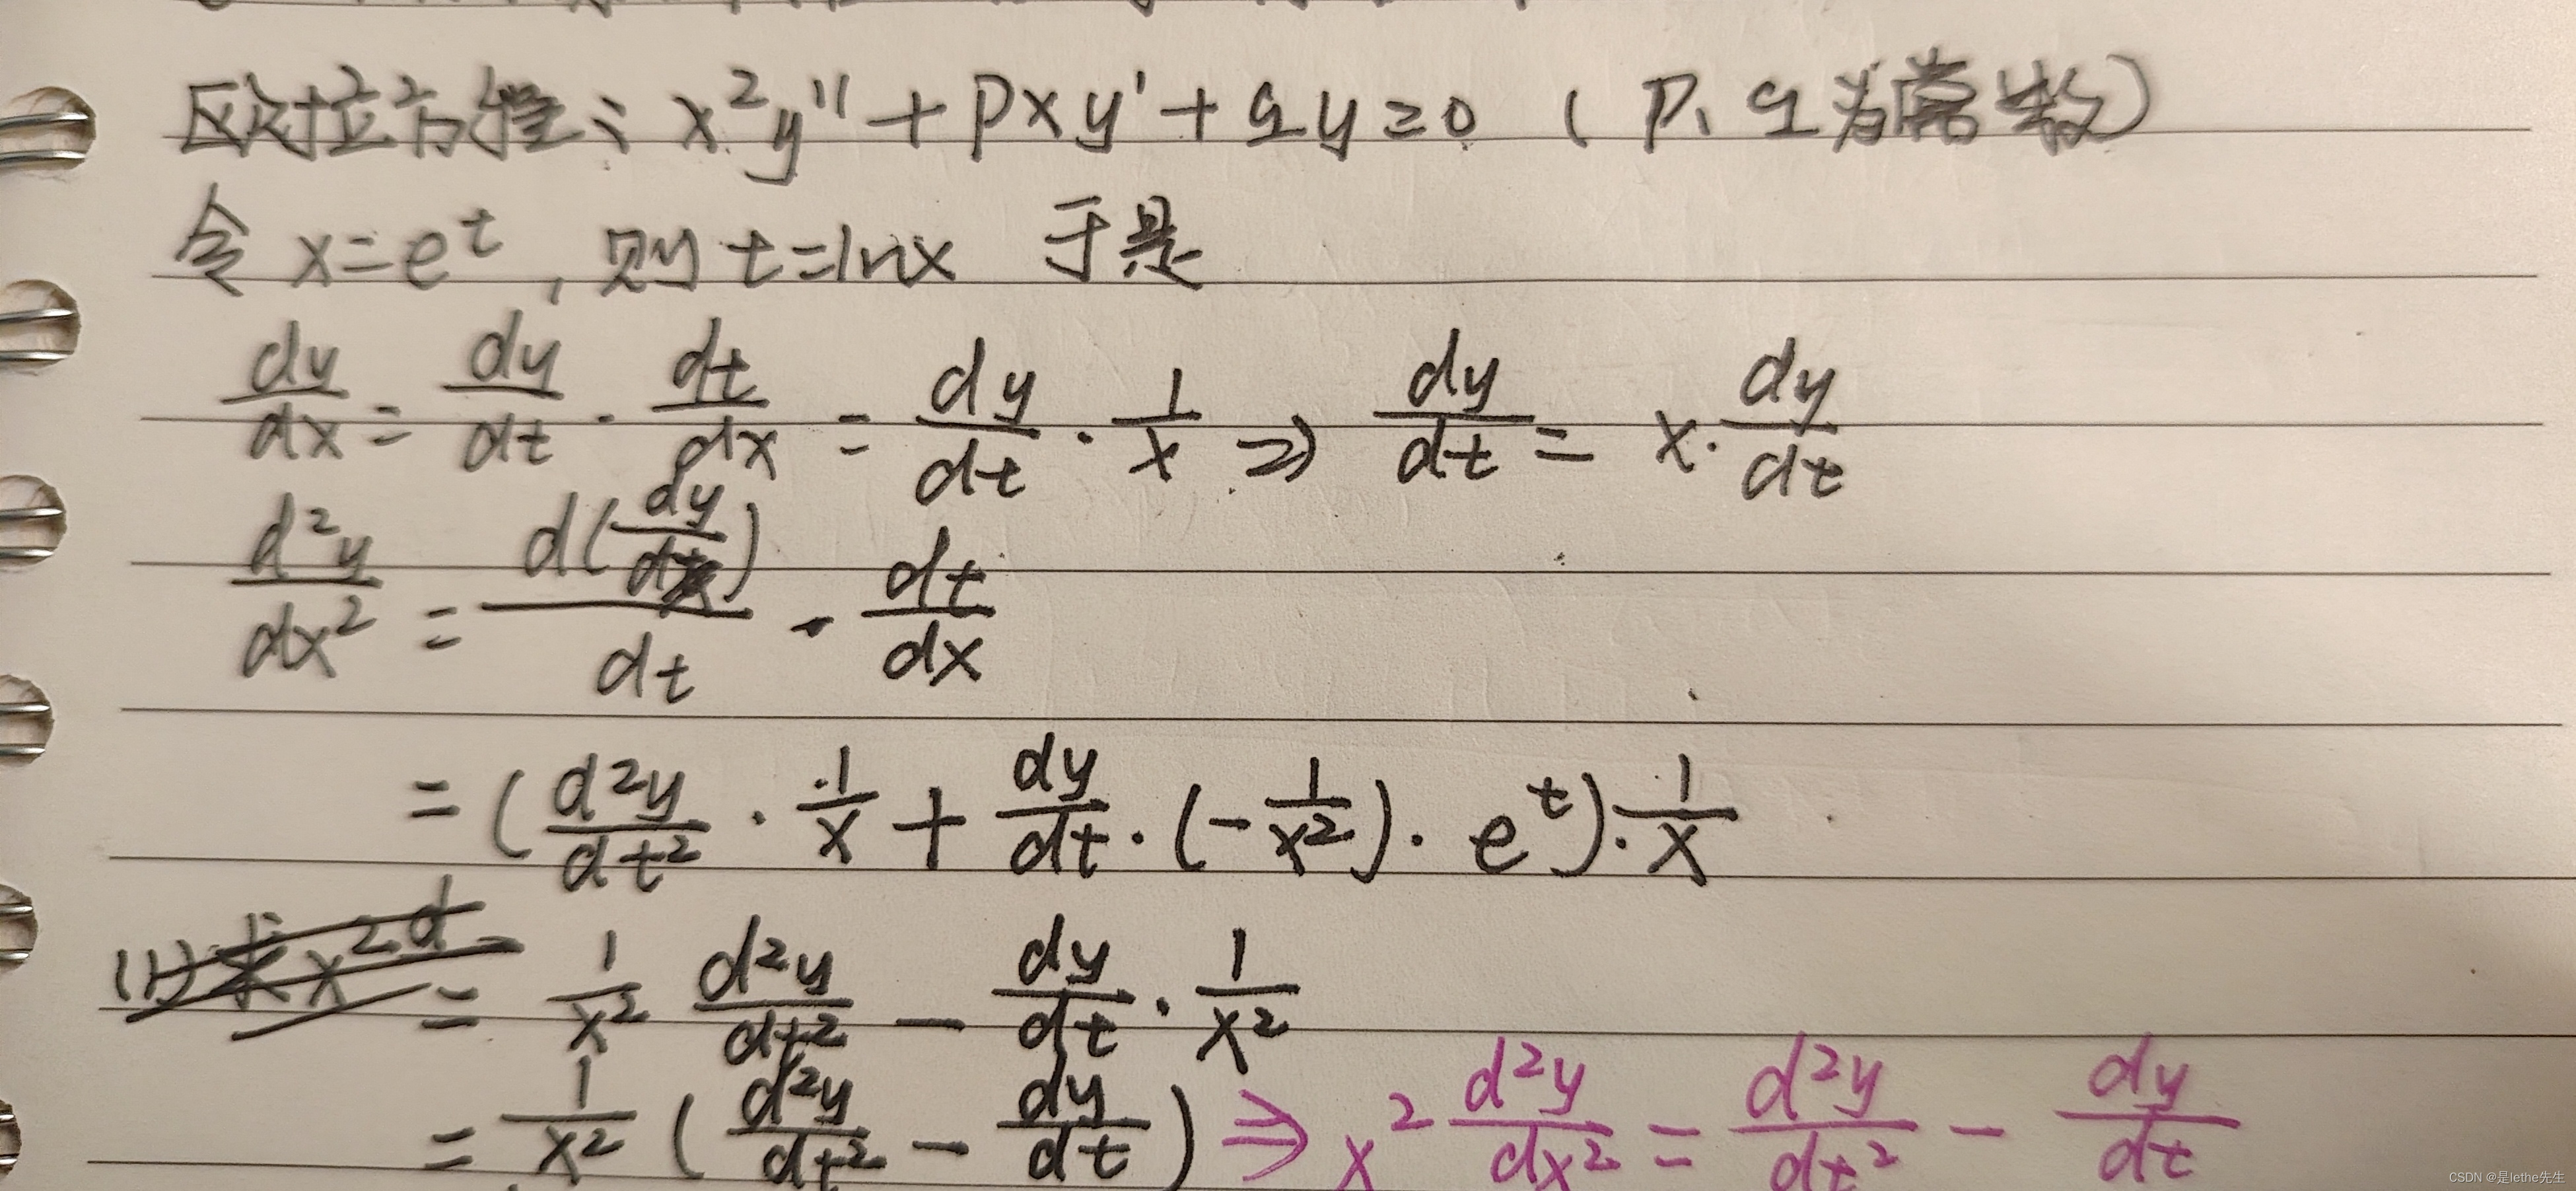 欧拉方程: x²y'' + pxy' + qy = 0 (p、q为常数)
令 x=e^t, 则 t=lnx 于是
dy/dx = dy/dt · dt/dx = dy/dt · 1/x ⇒ dy/dt = x · dy/dt
d²y/dx² = d(dy/dx)/dt · dt/dx
= (d²y/dt² · 1/x + dy/dt · (-1/x²) · e^t) · 1/x
= 1/x² d²y/dt² - dy/dt · 1/x²
= 1/x² (d²y/dt² - dy/dt) ⇒ x² d²y/dx² = d²y/dt² - dy/dt
CSDN @是lethe先生